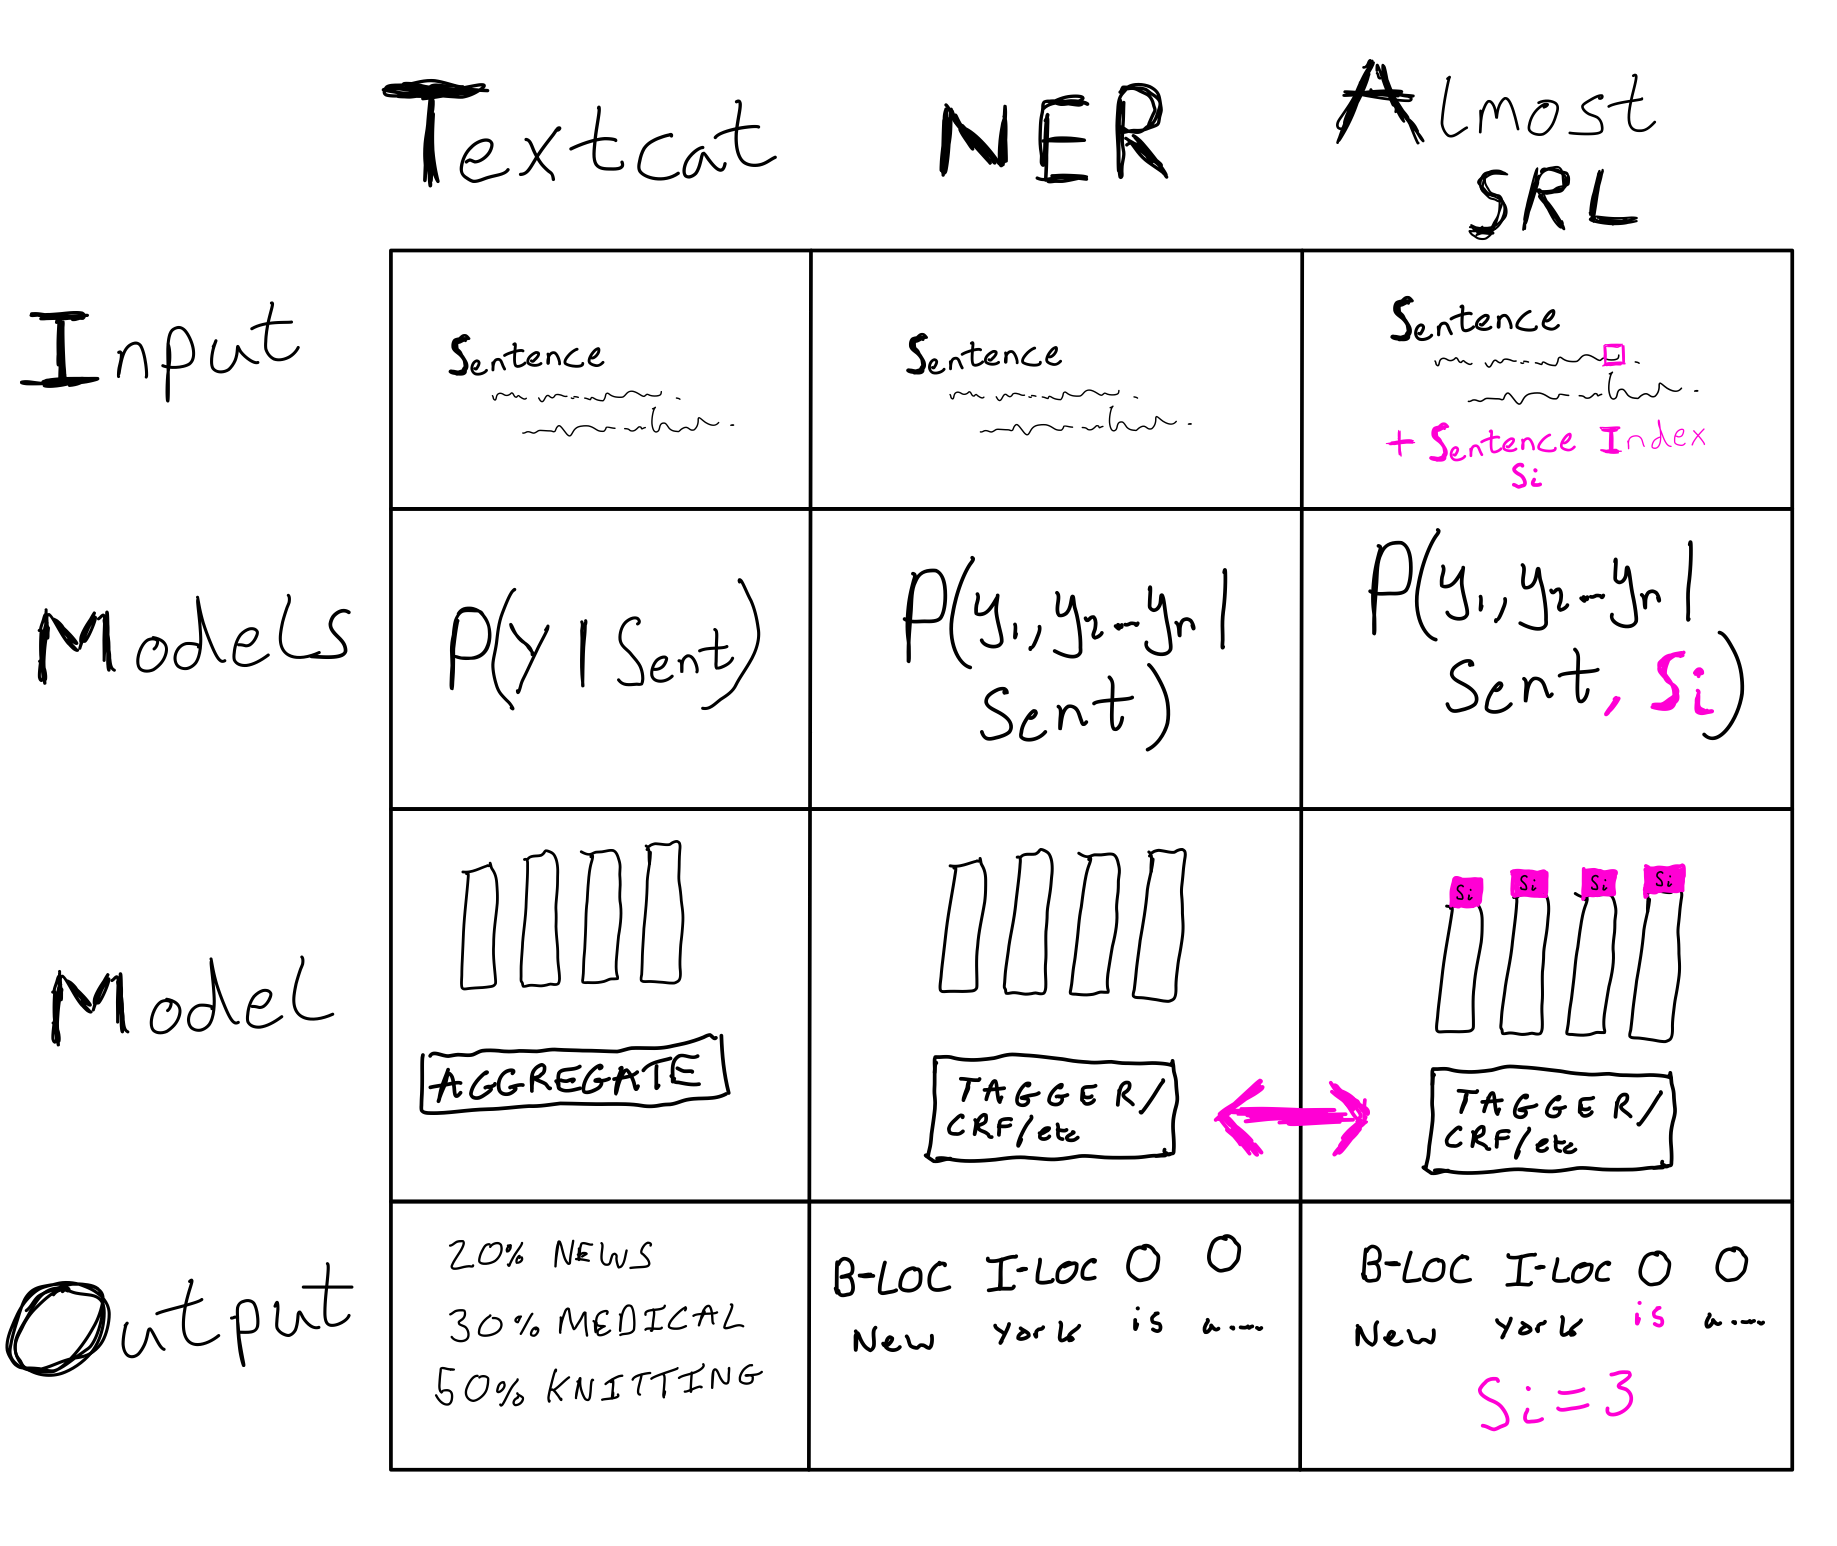 Textcat NER Almost
SRL
Input
Sentence
Sentence
Sentence
+ Sentence Index
Si
Models
P(Y | Sent)
P(y1, y2--yn |
Sent)
P(y1, y2--yn |
Sent, Si)
Model
AGGREGATE
TAGGER/
CRF/etc
Si Si Si Si
TAGGER/
CRF/etc
Output
20% NEWS
30% MEDICAL
50% KNITTING
B-LOC I-LOC O O
New York is a....
B-LOC I-LOC O O
New York is a....
Si=3